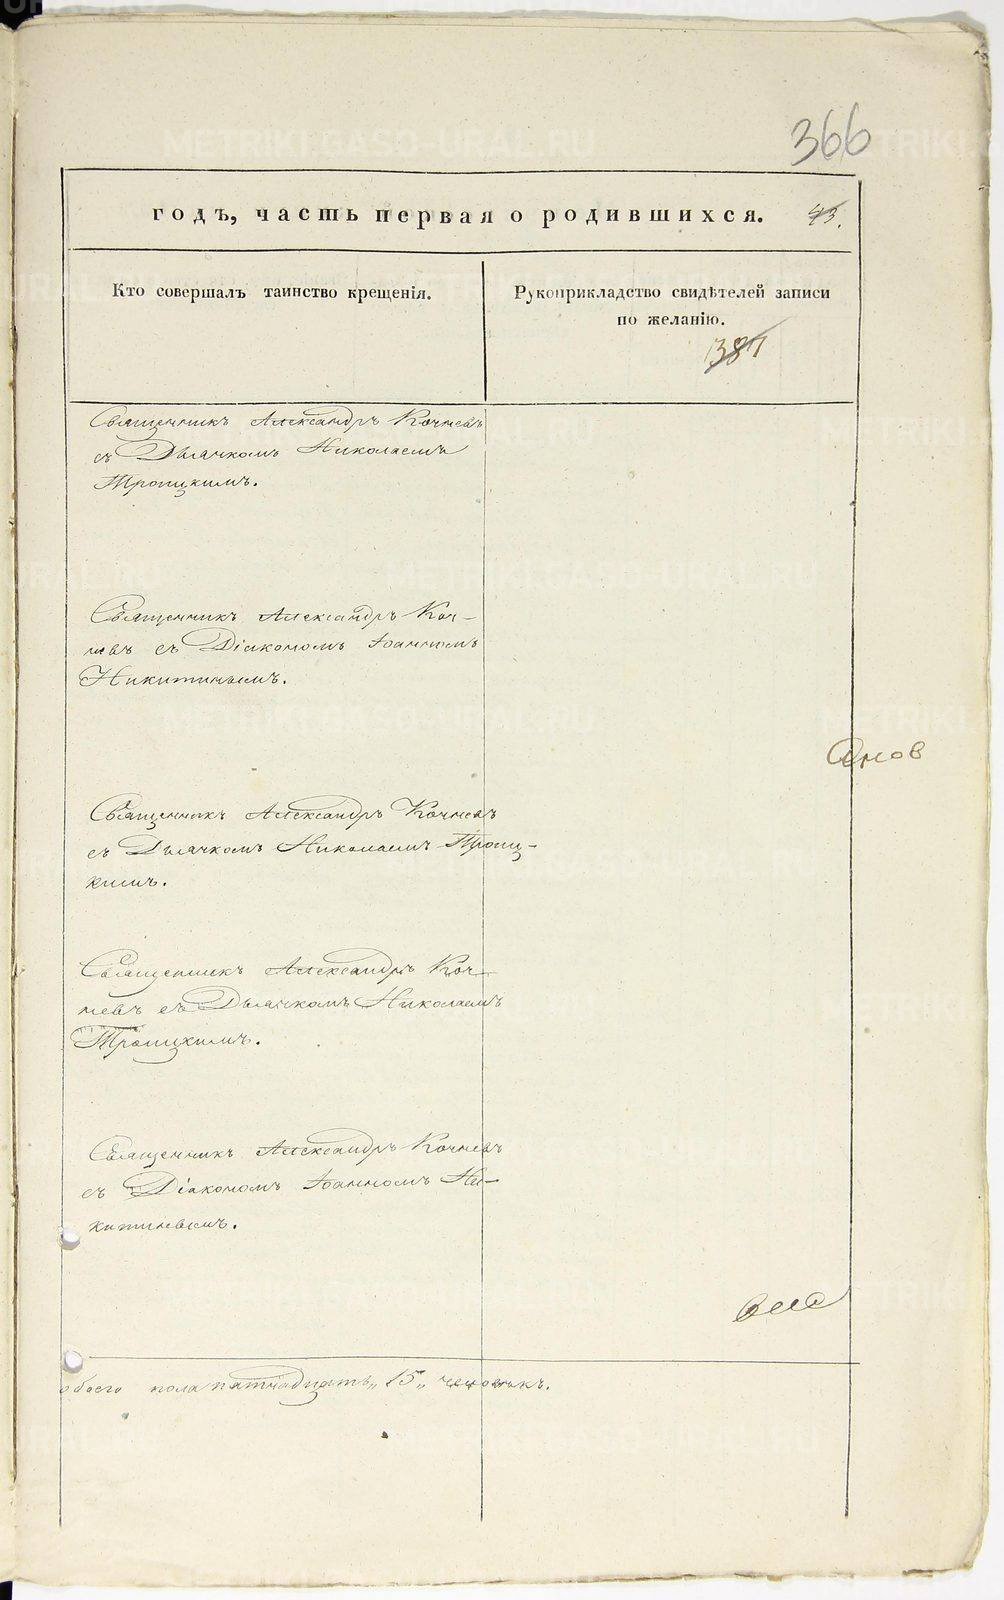 366
годъ, часть первая о родившихся. 43.
Кто совершалъ таинство крещенія.
Рукоприкладство свидѣтелей записи
по желанію.
1387
Священникъ Александръ Кочневъ
съ Дьячкомъ Николаемъ
Троицкимъ.
Священникъ Александръ Коч-
невъ съ Діакономъ Іоанномъ
Никитинымъ.
Священникъ Александръ Кочневъ
съ Дьячкомъ Николаемъ Троиц-
кимъ.
Священникъ Александръ Коч-
невъ съ Дьячкомъ Николаемъ
Троицкимъ.
Священникъ Александръ Кочневъ
съ Діакономъ Іоанномъ Ни-
китинымъ.
обоего пола пятнадцать „15„ человѣкъ.
METRIKI.GASO-URAL.RU